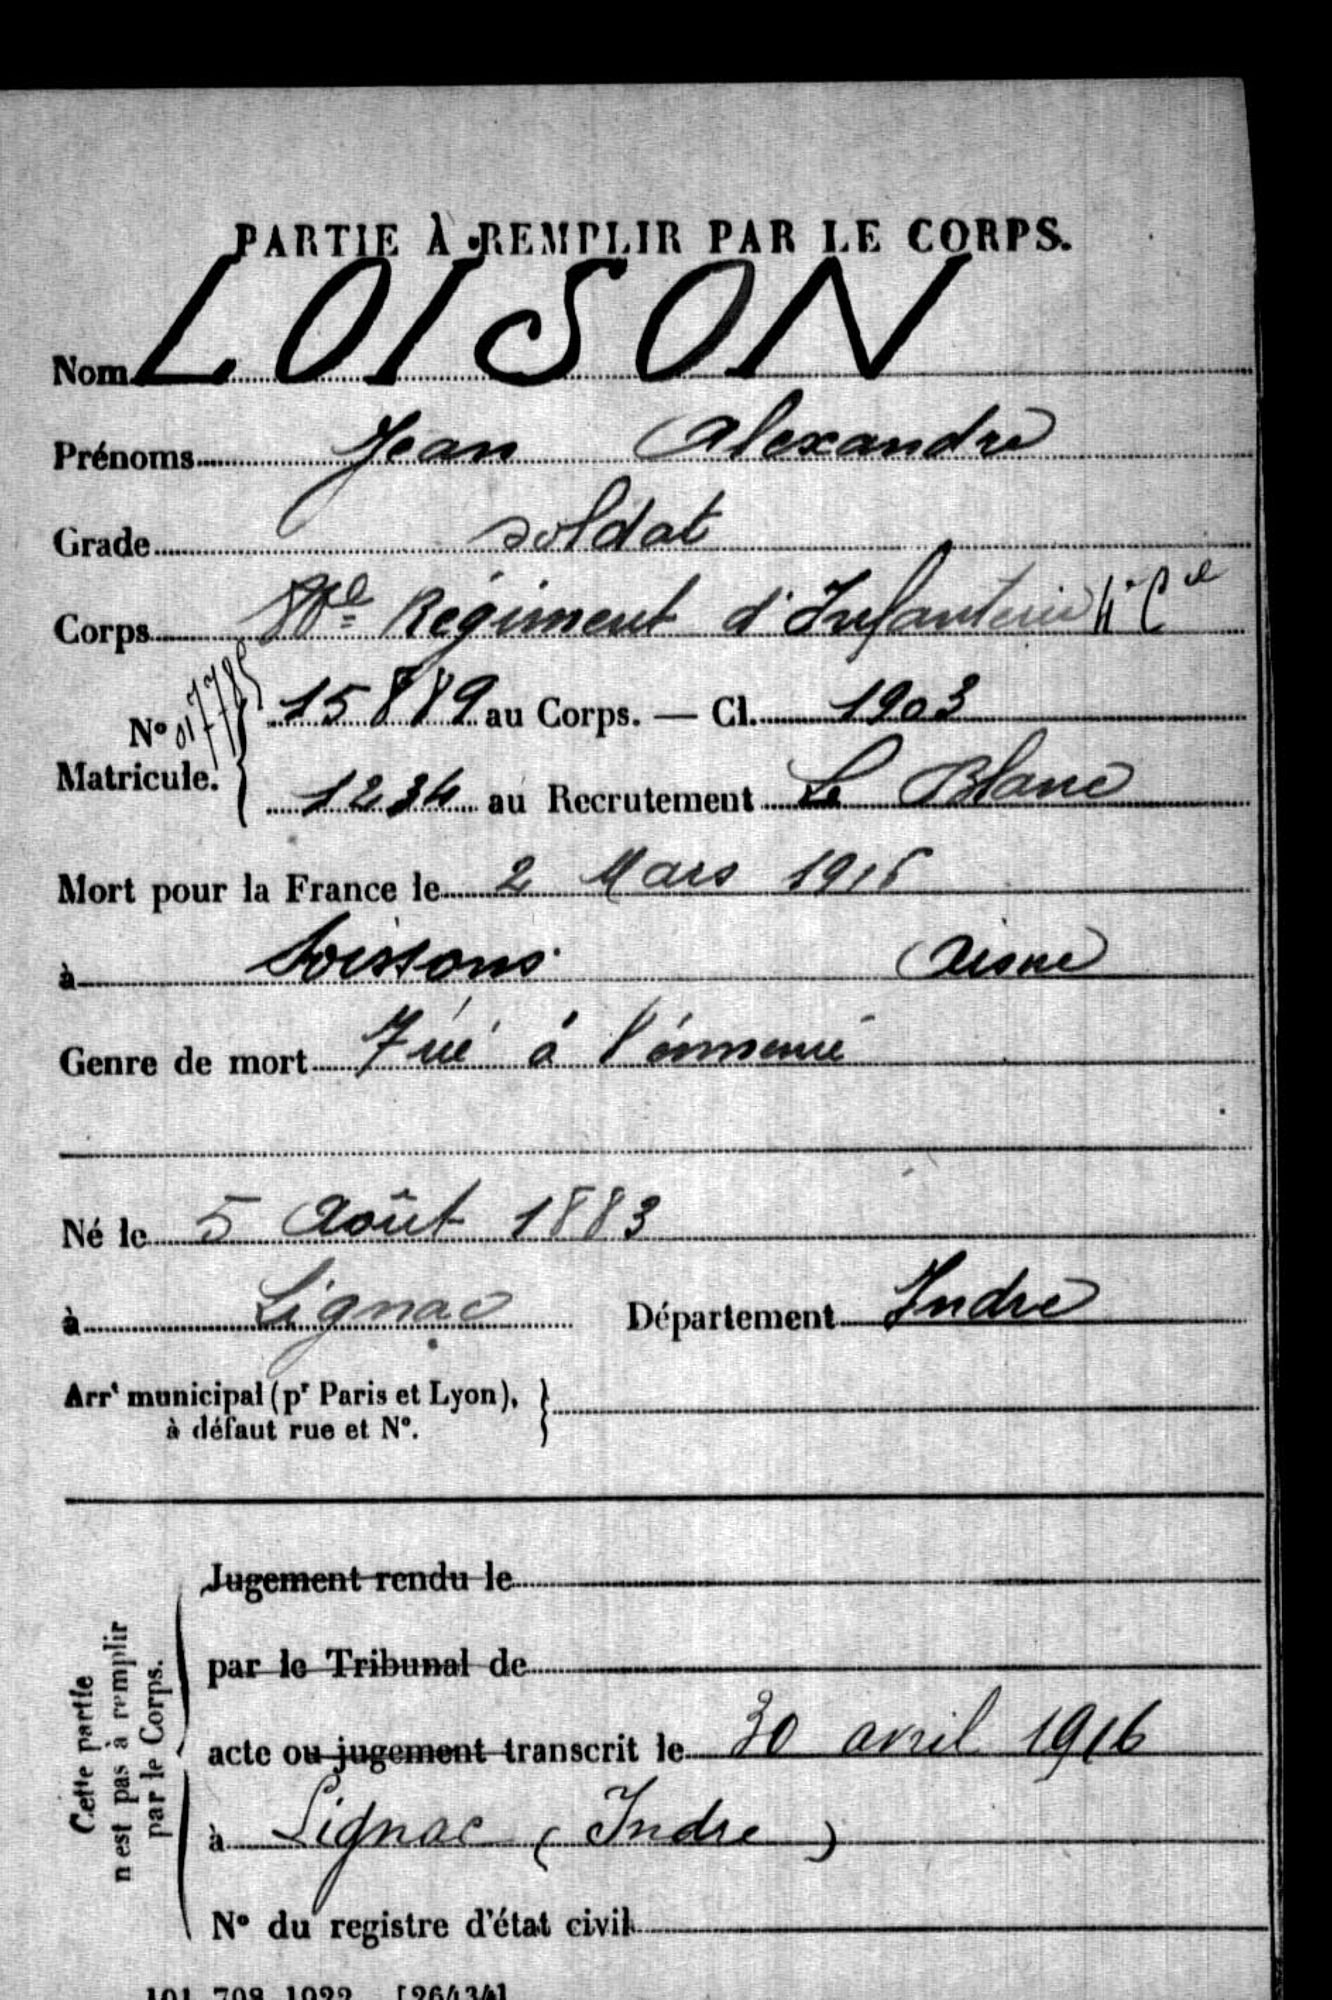 PARTIE À REMPLIR PAR LE CORPS.
Nom LOISON
Prénoms Jean Alexandre
Grade soldat
Corps Régiment d'Infanterie 4e Cie
N° Matricule. 15889 au Corps. — Cl. 1903
1234 au Recrutement Le Blanc
Mort pour la France le 2 Mars 1916
à Soissons Aisne
Genre de mort Tué à l'ennemi
Né le 5 Août 1883
à Lignac Département Indre
Arrt municipal (pr Paris et Lyon),
à défaut rue et N°.
Cette partie
n'est pas à remplir
par le Corps.
Jugement rendu le
par le Tribunal de
acte ou jugement transcrit le 30 avril 1916
à Lignac (Indre)
N° du registre d'état civil
101 708 1922 [26434]